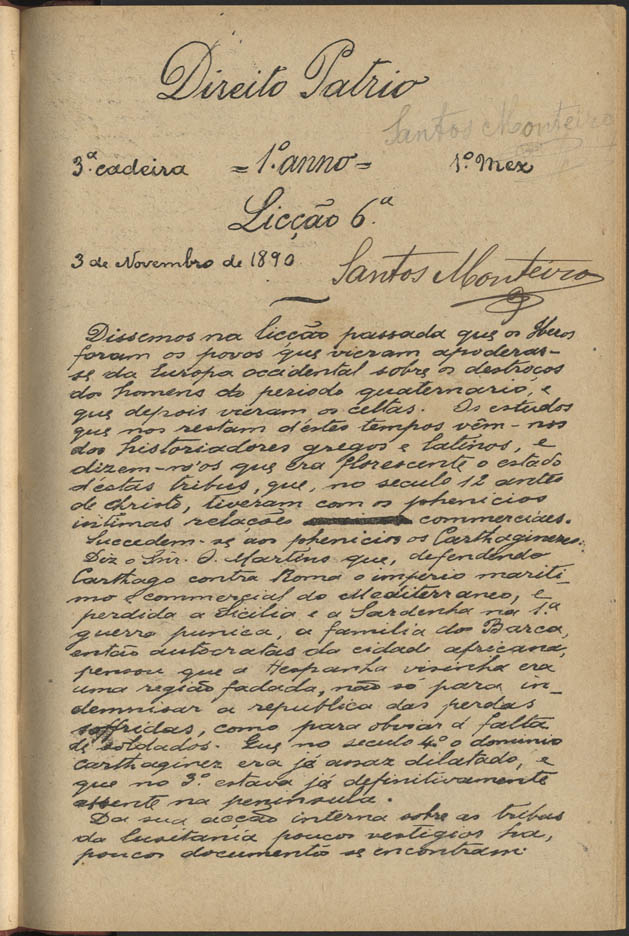 Direito Patrio
Santos Monteiro
3.ª cadeira = 1.º anno = 1.º Mez
Licção 6.ª
3 de Novembro de 1890 Santos Monteiro
Dissemos na licção passada que os Iberos
foram os povos que vieram apoderar-
se da Europa occidental sobre os destroços
dos homens do periodo quaternario, e
que depois vieram os celtas. Os estudos
que nos restam d'estes tempos vêm-nos
dos historiadores gregos e latinos, e
dizem-n'os que era florescente o estado
d'éstas tribus, que, no seculo 12 antes
de Christo, tiveram com os phenicios
intimas relações commerciaes.
Succedem-se aos phenicios os Carthaginezes.
Diz o Snr. O. Martins que, defendendo
Carthago contra Roma o imperio mariti-
mo e commercial do Mediterraneo, e
perdida a Sicilia e a Sardenha na 1ª
guerra punica, a familia dos Barca,
então autocratas da cidade africana,
pensou que a Hespanha visinha era
uma região fadada, não só para in-
demnisar a republica das perdas
soffridas, como para obviar á falta
de soldados. Que no seculo 4º o dominio
carthaginez era já assaz dilatado, e
que no 3º estava já definitivamente
assente na peninsula.
Da sua acção interna sobre as tribus
da Lusitania poucos vestigios ha,
poucos documentos se encontram.